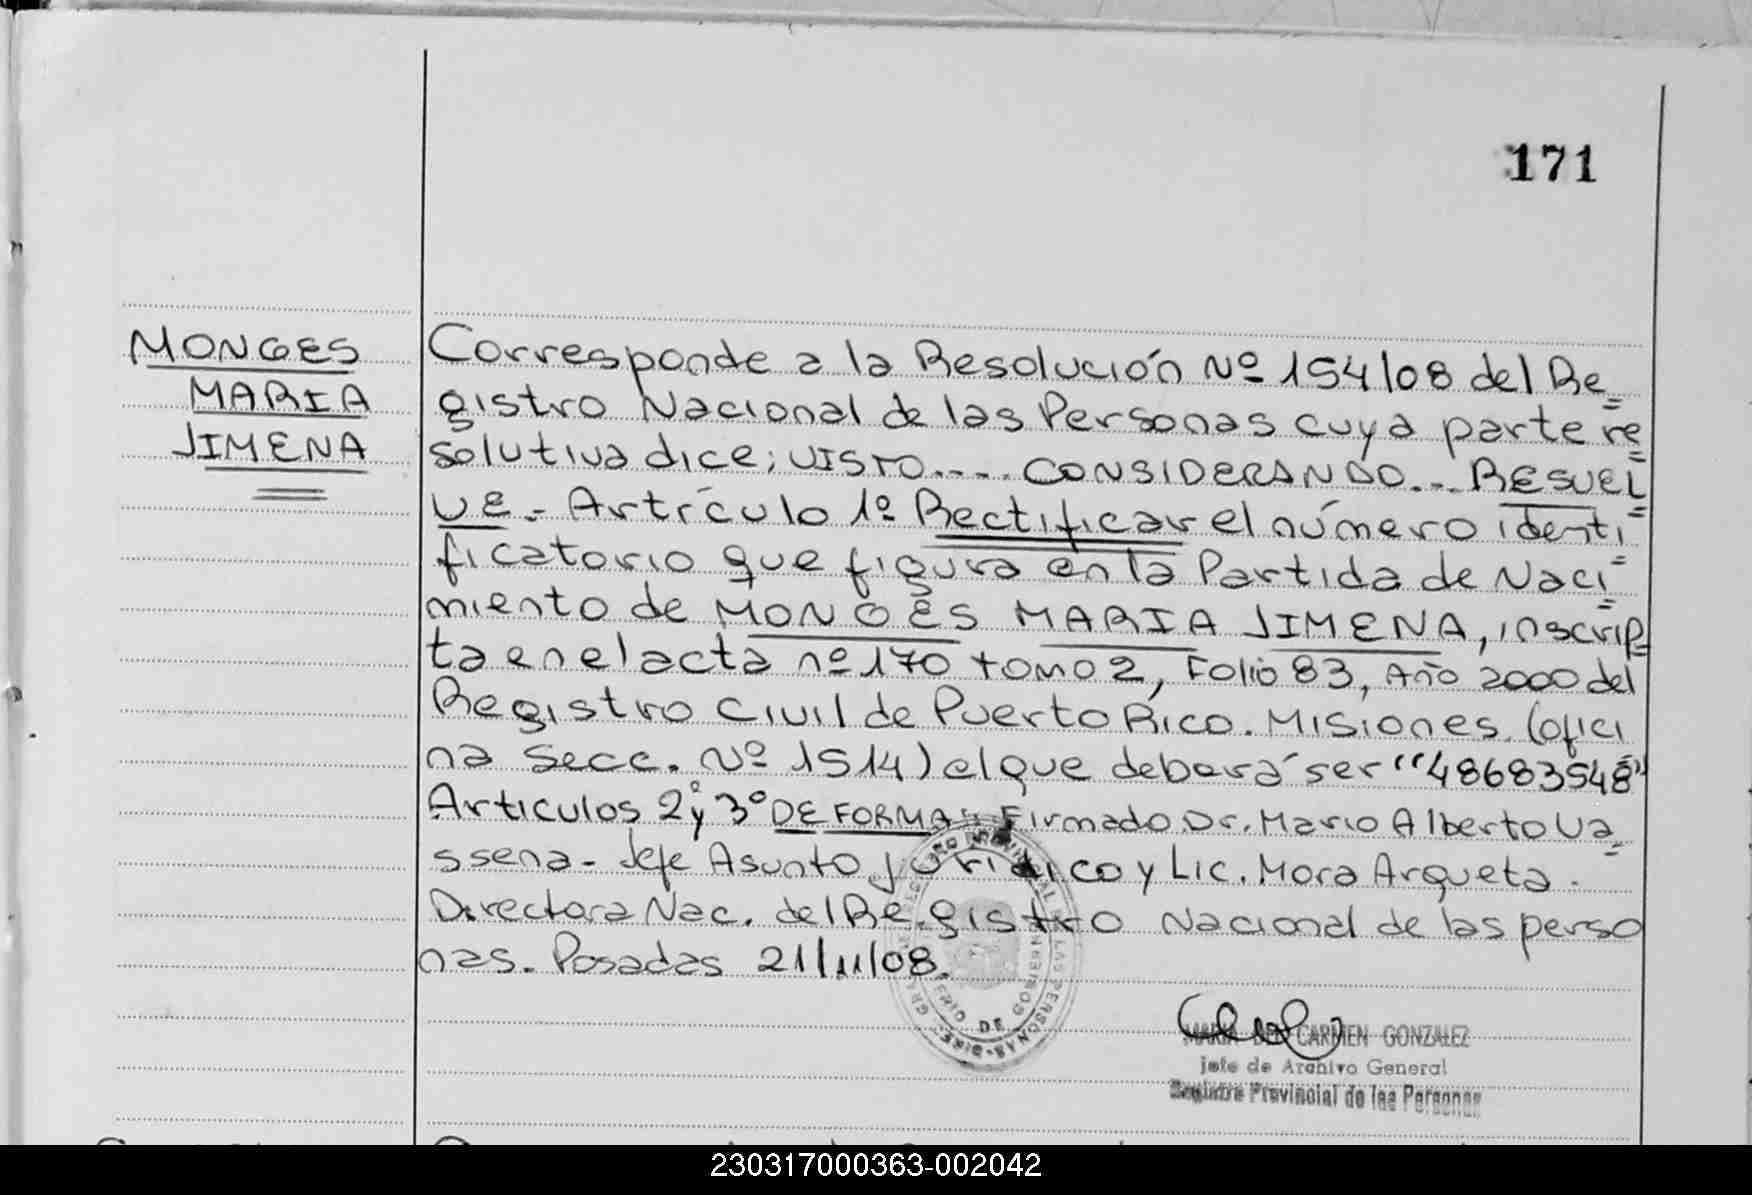 171
MONGES
MARIA
JIMENA
Corresponde a la Resolución Nº 154/08 del Re
gistro Nacional de las Personas cuya parte re
solutiva dice; VISTO.... CONSIDERANDO... RESUEL
VE.- Artículo 1º Rectificar el número identi
ficatorio que figura en la Partida de Naci
miento de MONGES MARIA JIMENA, inscrip
ta en el acta nº 170 tomo 2, Folio 83, Año 2000 del
Registro Civil de Puerto Rico. Misiones (ofici
na Secc. Nº 1514) el que deberá ser "48683548"
Articulos 2º y 3º DE FORMA.- Firmado Dr. Mario Alberto Va
ssena - Jefe Asunto Juridico y Lic. Mora Arqueta.
Directora Nac. del Registro Nacional de las perso
nas. Posadas 21/11/08.
MARIA DEL CARMEN GONZALEZ
Jefe de Archivo General
Registro Provincial de las Personas
230317000363-002042